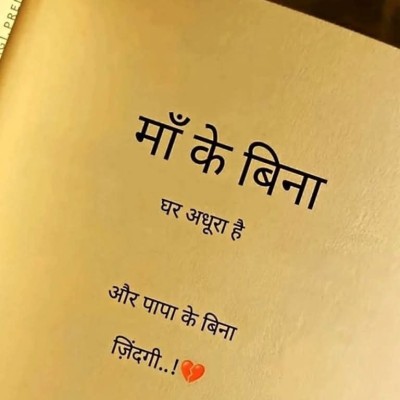 माँ के बिना
घर अधूरा है
और पापा के बिना
ज़िंदगी..!💔